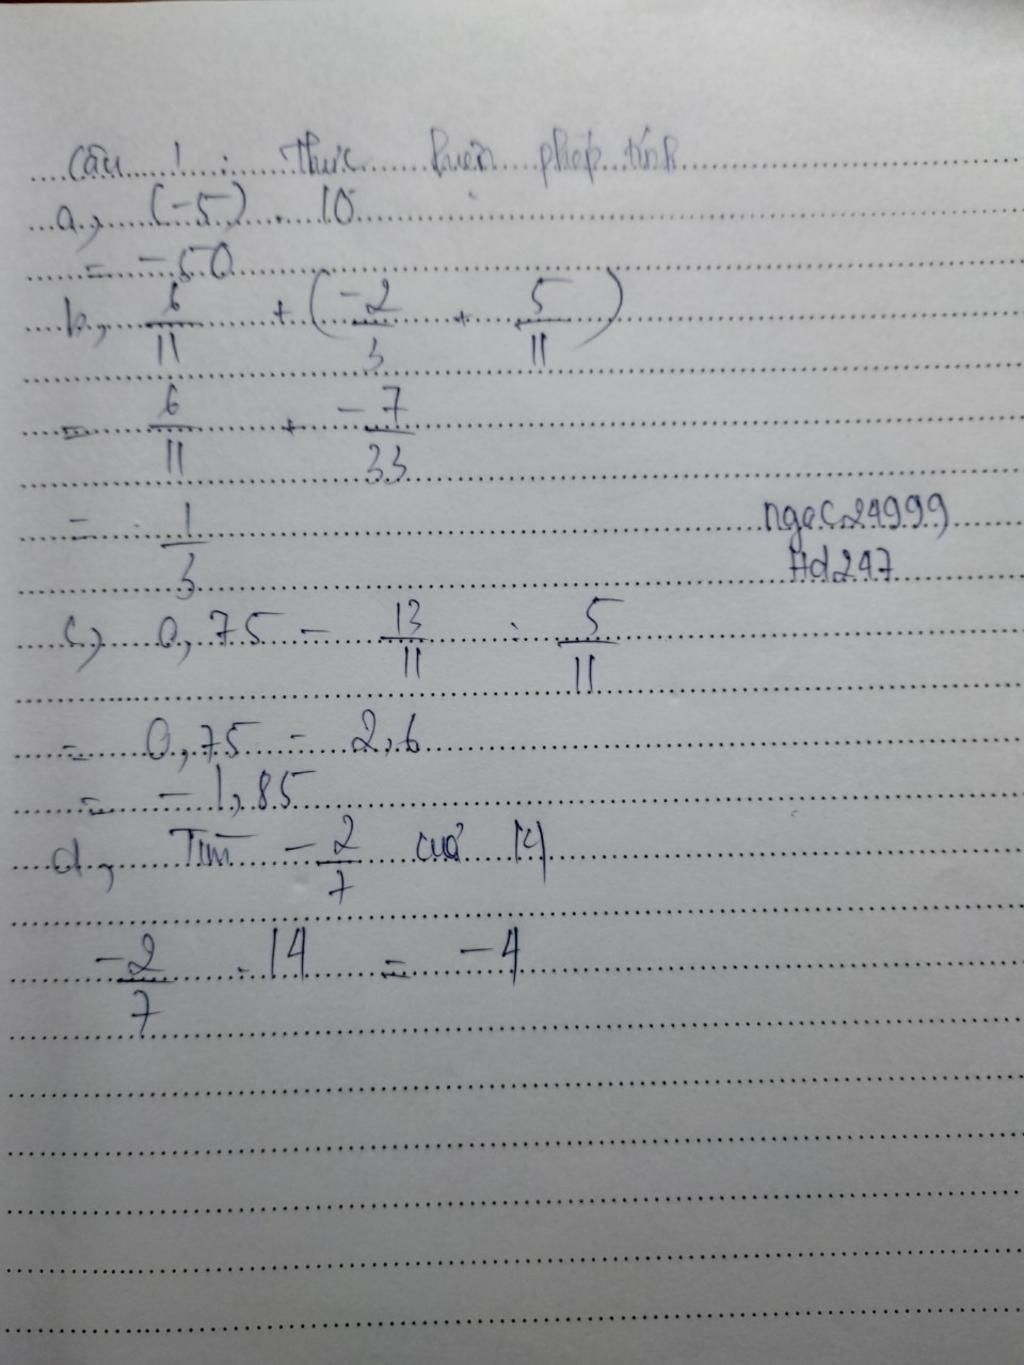 Câu 1 : Thực hiện phép tính
a, (-5) . 10
= -50
b, 6/11 + (-2/3 + 5/11)
= 6/11 + -7/33
= 1/3
ngoc24999
Hd247
c) 0,75 - 13/11 : 5/11
= 0,75 - 2,6
= -1,85
d, Tìm -2/7 của 14
-2/7 . 14 = -4